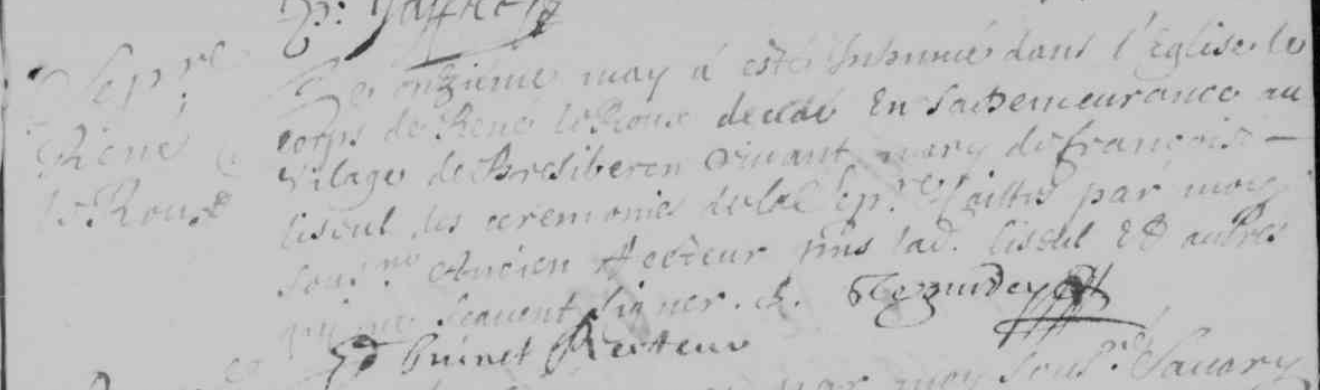 Sep.re
René
le Roux
Le onzieme may a esté Inhumé dans l'Eglise le
corps de René le Roux decedé En sa demeurance au
vilage de Bresiberen vivant mary de françoise
liscul les ceremonies de la Sep.re faittes par moy
sous.né Ancien Recteur pns lad. liscul Et autres
qui ne scavent signer.
Guinet Recteur
par moy sous.né Savary